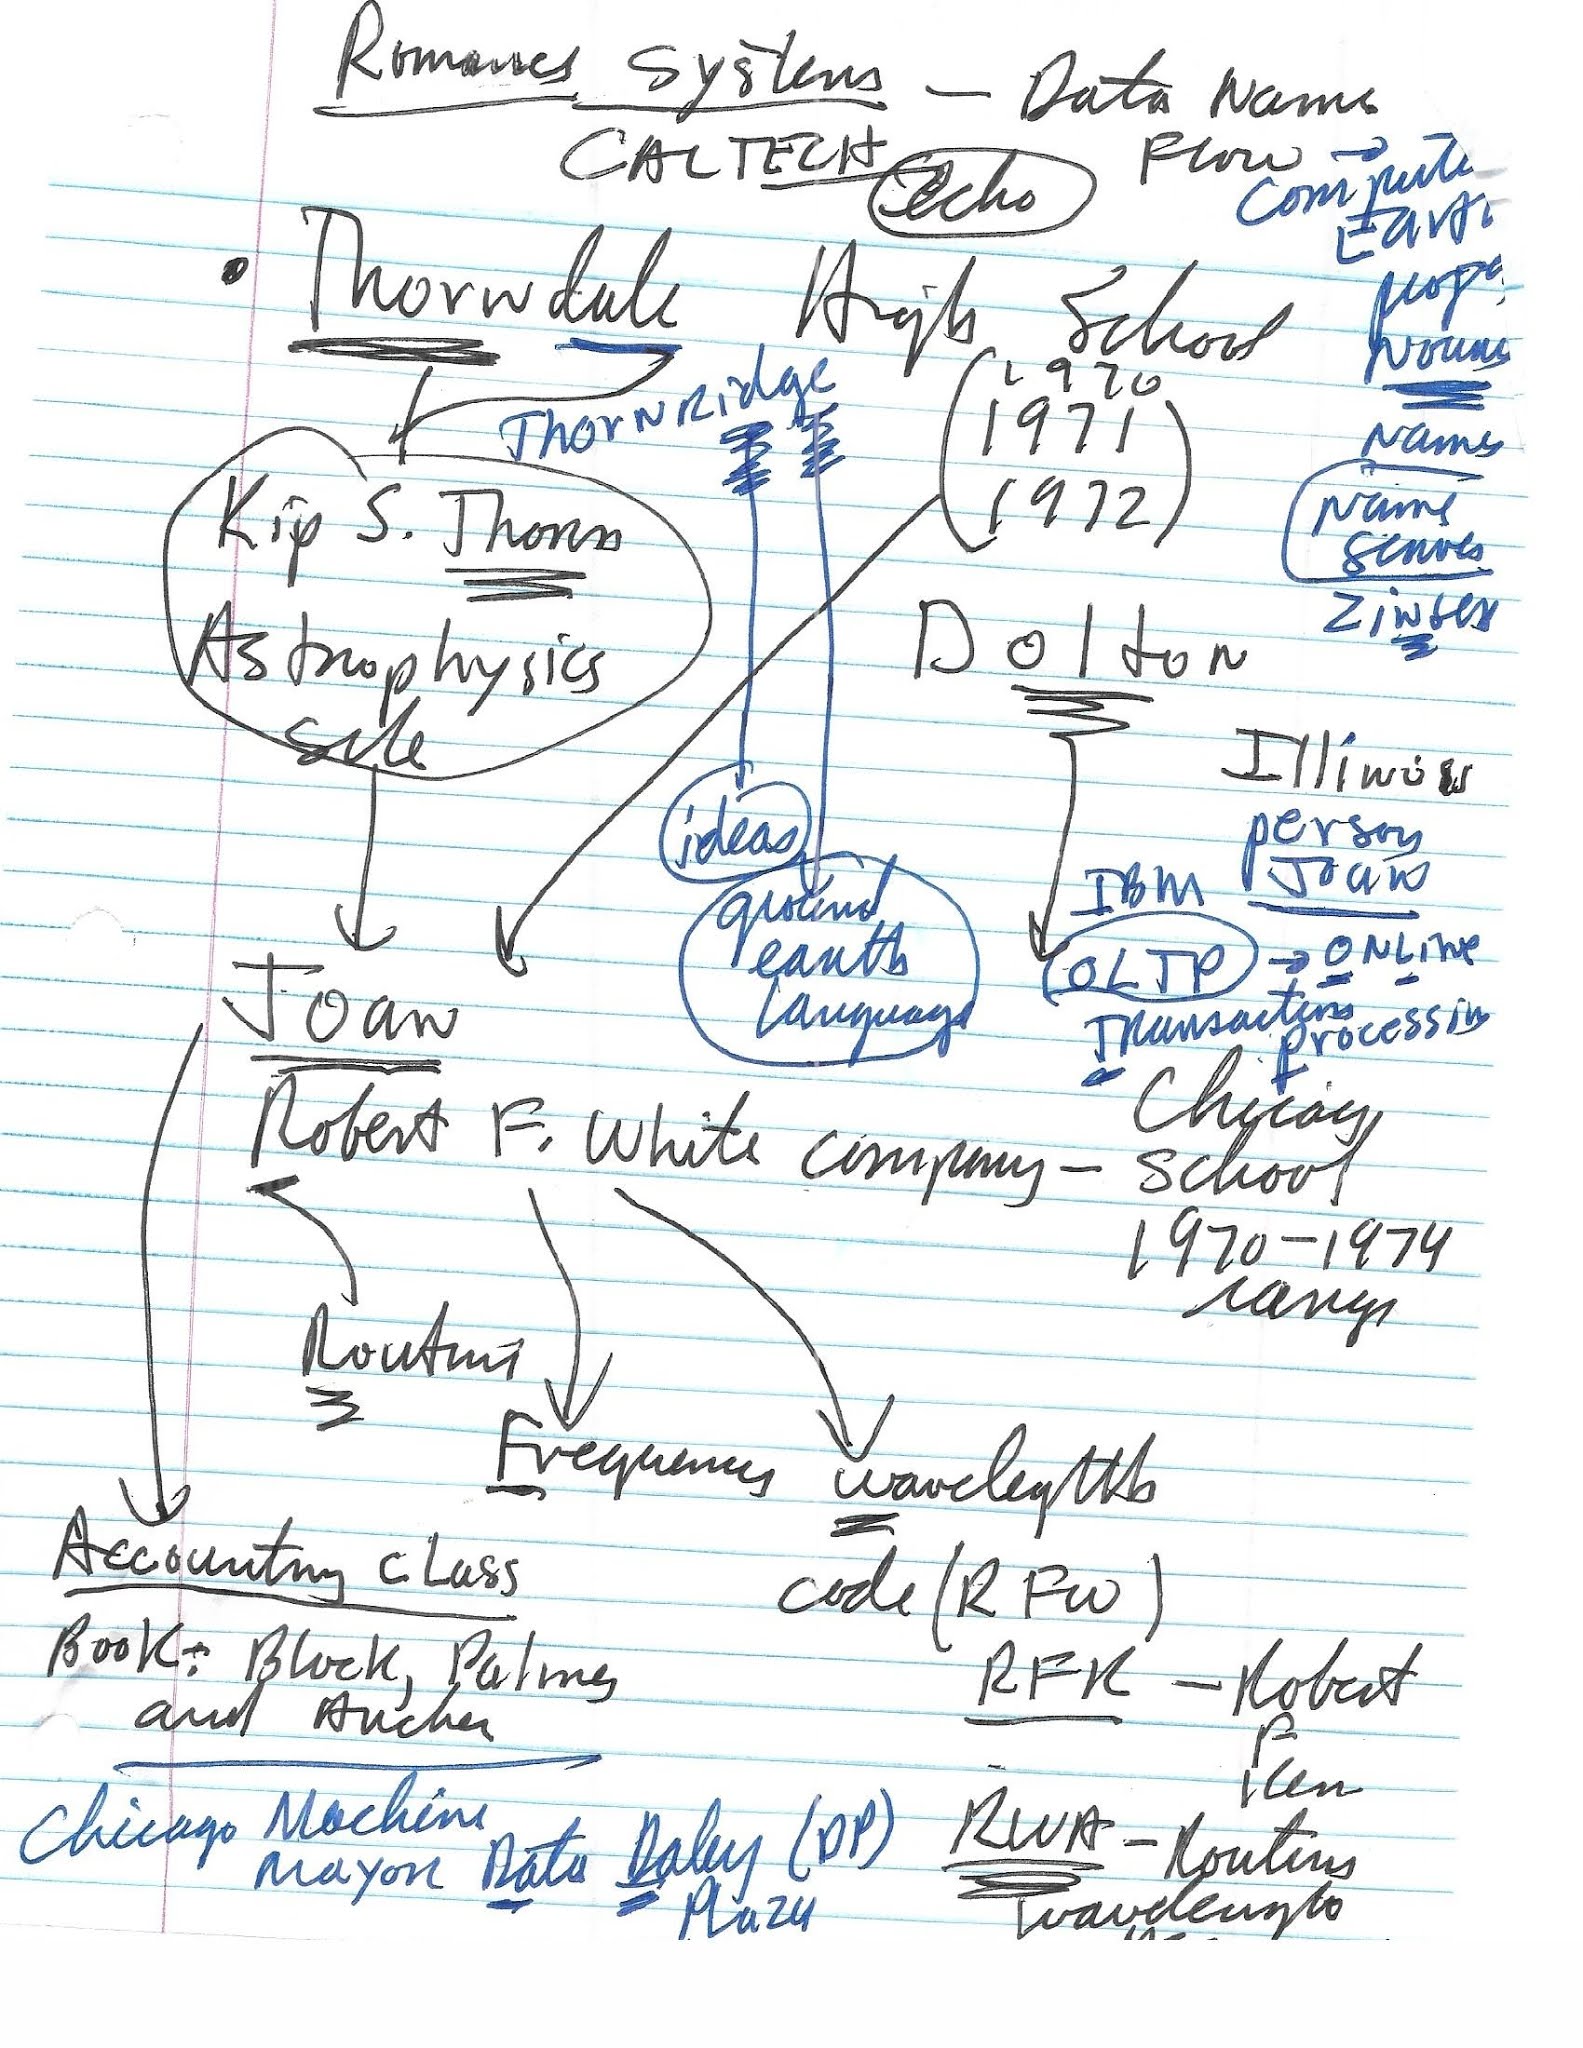 Systems – Data Name
CALTECH Echo Flow →
Earth
Nouns
Names
Name
• Thorndale High School
ThornRidge
(1970
1971
1972)
Kip S. Thorne
Astrophysics
Dolton
Illinois
person
Joan
ideas
ground
earth
language
IBM
OLTP → ONLine
Transactions
Processing
Joan
Robert F. White Company – Chicago
School
1970–1974
range
Routine
Frequency wavelength
code (RFW)
Accounting class
Book: Block, Palmer
and Archer
RFK – Robert
F
Ken
RWA – Routine
Wavelength
Chicago Machine
Mayor Data Daley (DP)
Plaza